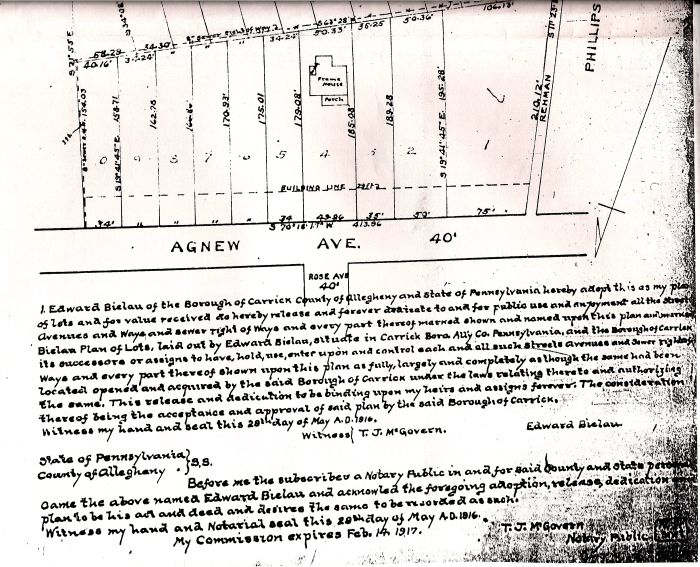 S 63° 28' W
106.13'
58.29 34.30' 8" Sewer Right of Way 34.24' 50.33' 35.25 50.36'
40.16'
S 11° 23'
PHILLIPS
Frame
House
Porch
156.03
158.71
162.76
170.93'
175.01
179.08'
185.05'
189.28
S 19° 41' 45" E 195.28'
210.12'
REHMAN
S 19° 41' 45" E
0 9 8 7 6 5 4 3 2 1
BUILDING LINE
34' " " " " 34 49.96 35' 50' 75'
S 70° 18' 17" W 413.96
AGNEW AVE. 40'
ROSE AVE
40'
I, Edward Bielau of the Borough of Carrick County of Allegheny and State of Pennsylvania hereby adopt this as my plan
of lots and for value received do hereby release and forever dedicate to and for public use and enjoyment all the Streets
Avenues and Ways and sewer right of Ways and every part thereof marked shown and named upon this plan and marked
Bielau Plan of Lots, laid out by Edward Bielau, situate in Carrick Boro Ally Co. Pennsylvania, and the Borough of Carrick
its successors or assigns to have, hold, use, enter upon and control each and all such Streets avenues and sewer rights of
Ways and every part thereof shown upon this plan as fully, largely and completely as though the same had been
located opened and acquired by the said Borough of Carrick under the laws relating thereto and authorizing
the same. This release and dedication to be binding upon my heirs and assigns forever. The consideration
thereof being the acceptance and approval of said plan by the said Borough of Carrick.
Witness my hand and seal this 28th day of May A.D. 1916.
Witness } T. J. McGovern. Edward Bielau
State of Pennsylvania }
County of Allegheny } S.S.
Before me the subscriber a Notary Public in and for said County and State
Came the above named Edward Bielau and acknowled the foregoing adoption, release, dedication
plan to be his act and deed and desires the same to be recorded as such.
Witness my hand and Notarial seal this 28th day of May A.D. 1916.
My Commission expires Feb. 14. 1917.
T. J. McGovern
Notary Public